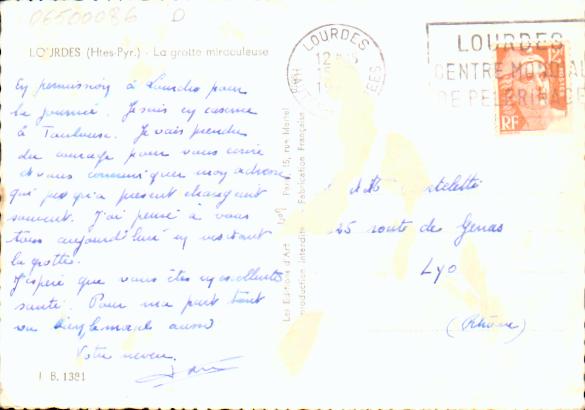 06500086 D
LOURDES (Htes-Pyr.) - La grotte miraculeuse
En permission à Lourdes pour
la journée. Je suis en caserne
à Toulouse. Je vais prendre
du courage pour vous écrire
et vous communiquer mon adresse
qui jusqu'à present changeait
souvent. J'ai pensé à vous
tous aujourd'hui en visitant
la grotte.
J'espère que vous êtes en excellente
santé. Pour ma part tout
va bien, le moral aussi
Votre neveu.
I B. 1381
Les Editions d'Art Paris 15, rue Martel
Reproduction interdite - Fabrication Française
LOURDES
12
LOURDES
CENTRE MONDIAL
DE PELERINAGE
RF
25 route de Genas
Lyo
(Rhône)